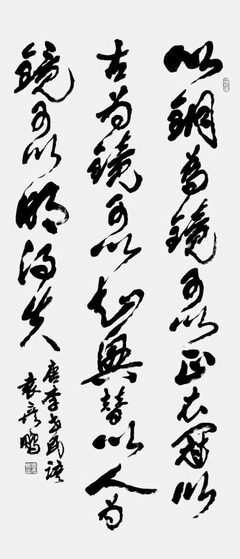 以銅為鏡可以正衣冠以
古為鏡可以知興替以人為
鏡可以明得失
唐李世民語
袁鵬